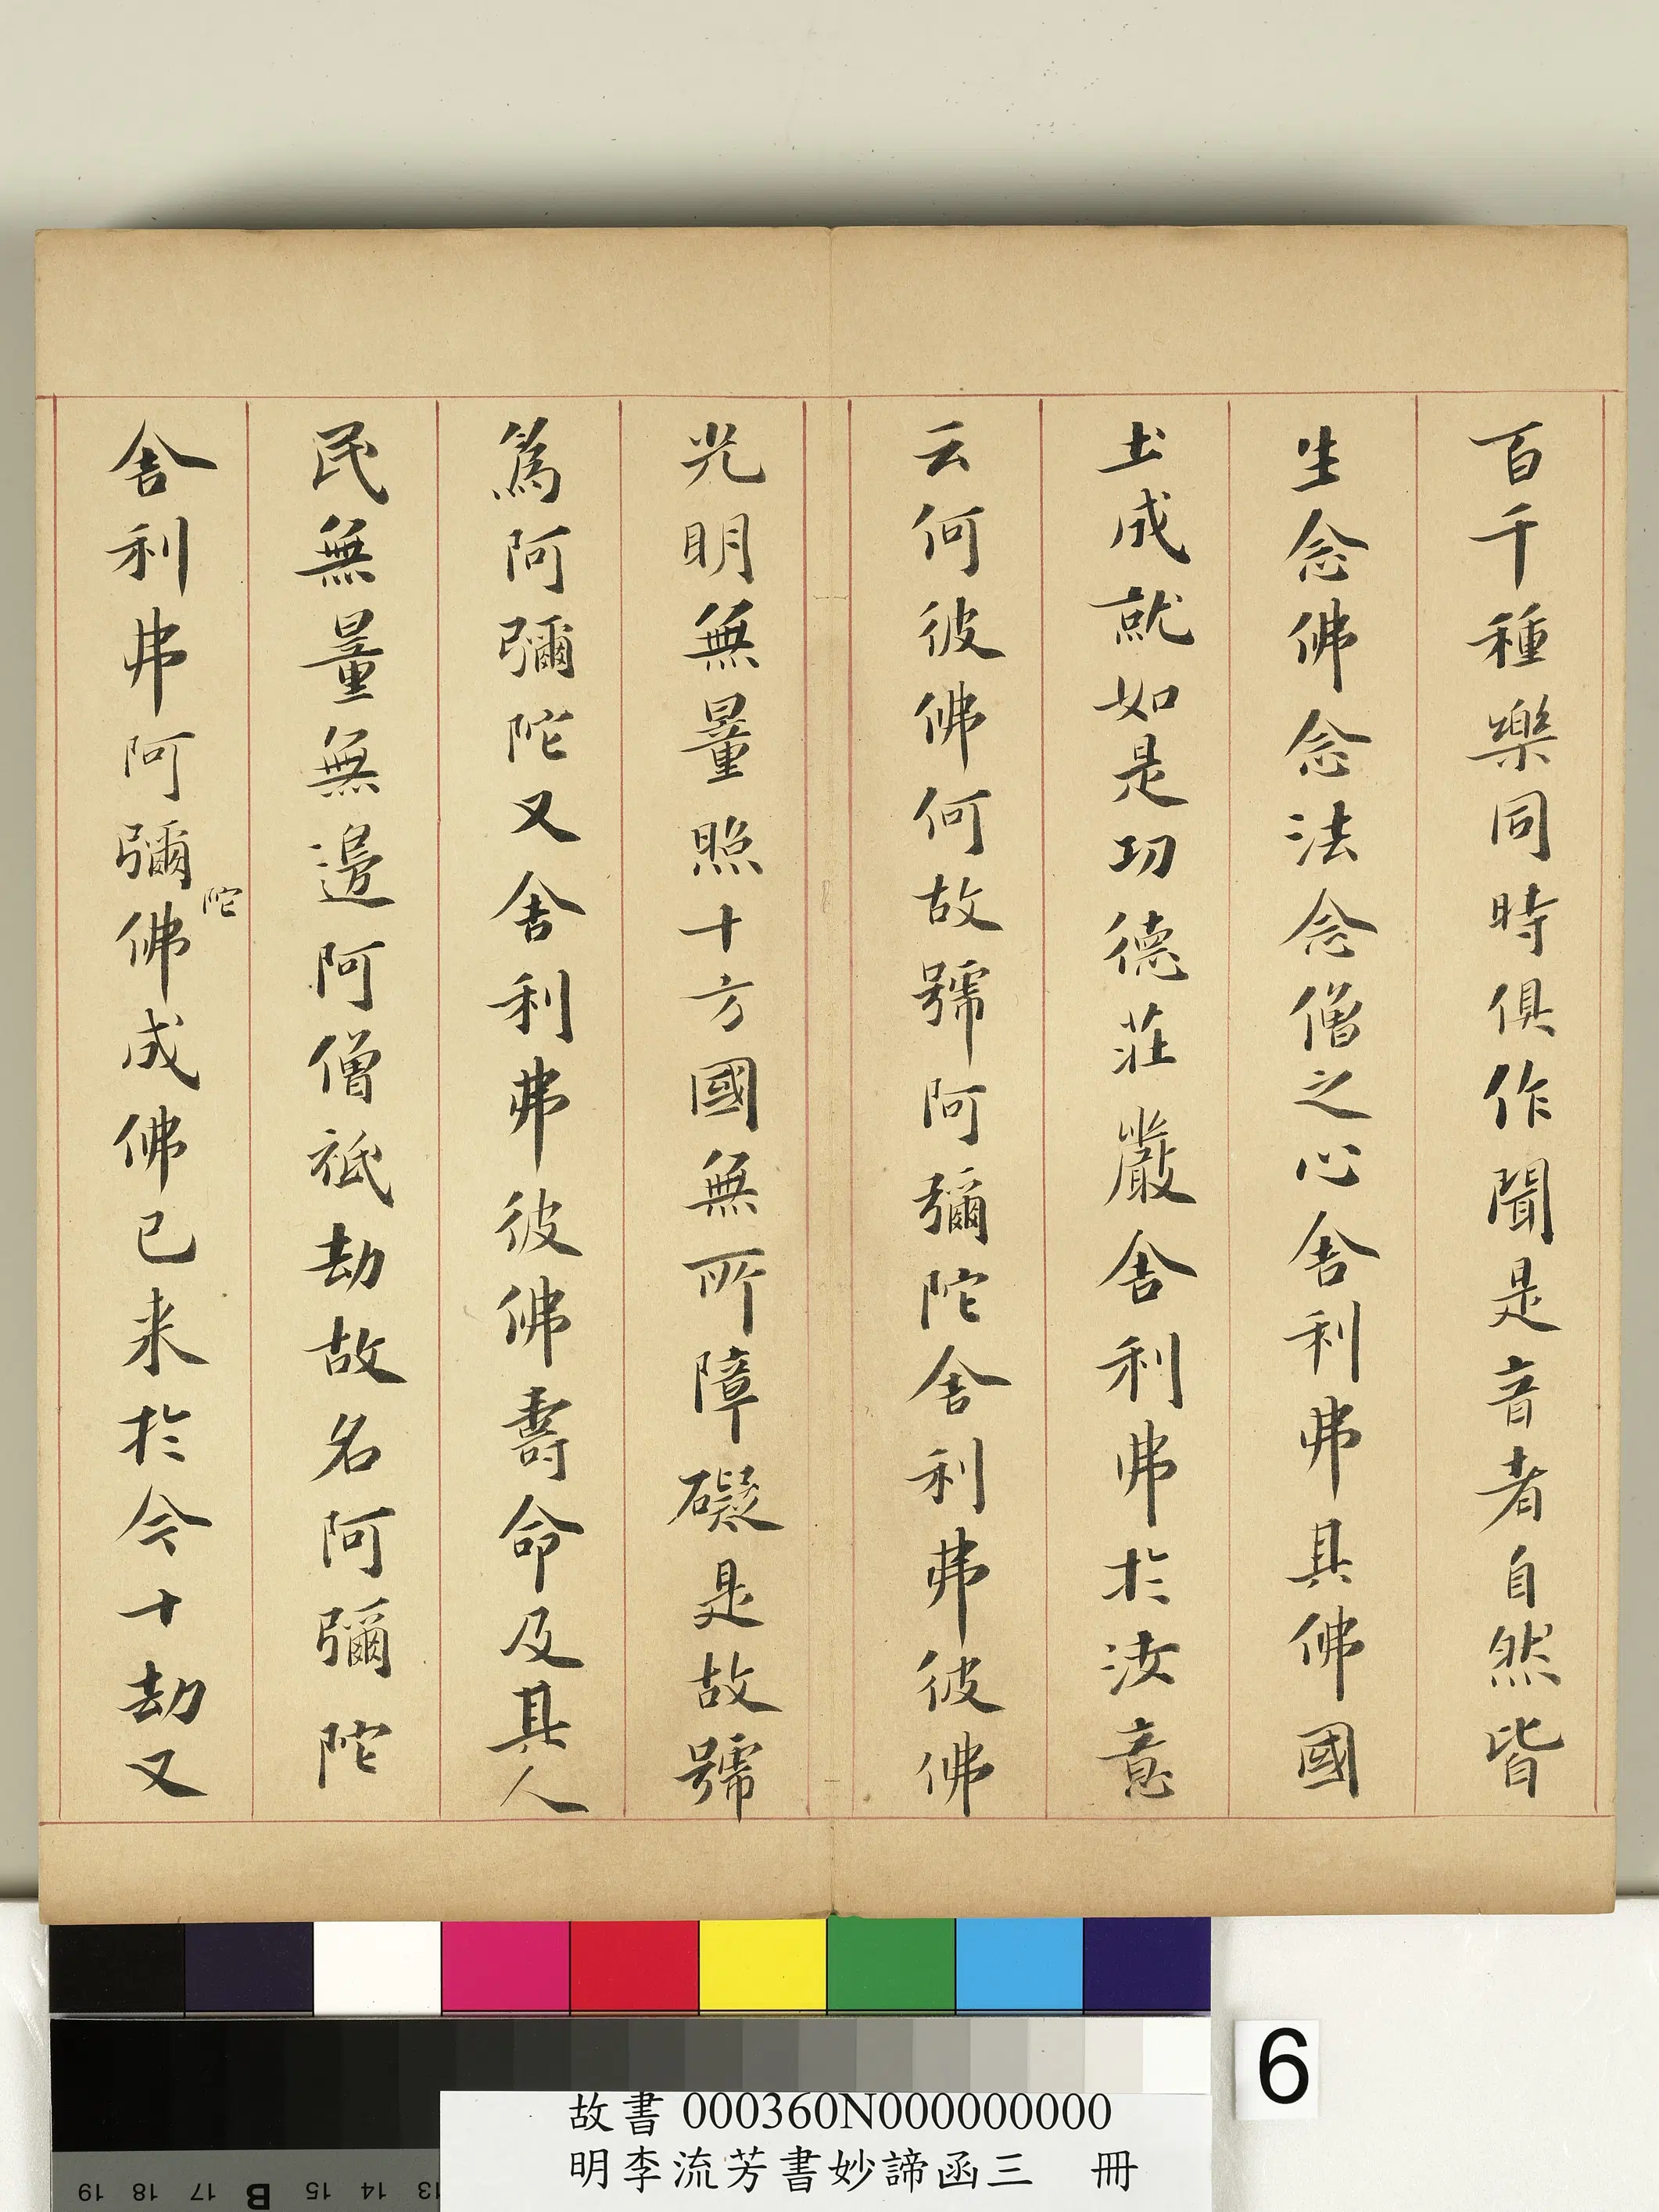 百千種樂同時俱作聞是音者自然皆
生念佛念法念僧之心舍利弗其佛國
土成就如是功德莊嚴舍利弗於汝意
云何彼佛何故號阿彌陀舍利弗彼佛
光明無量照十方國無所障礙是故號
為阿彌陀又舍利弗彼佛壽命及其人
民無量無邊阿僧祇劫故名阿彌陀
舍利弗阿彌陀佛成佛已来於今十劫又
6
故書 000360N000000000
明李流芳書妙諦函三 冊
19 18 17 B 15 14 13